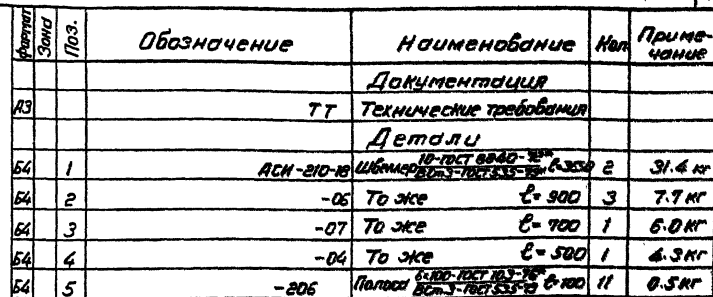 формат Зона Поз. Обозначение Наименование Кол. Приме-
чание
Документация
А3 ТТ Технические требования
Детали
Б4 1 АСИ-210-18 Швеллер 10-ГОСТ 8240-72* ℓ=3650 2 31.4 кг
ВСт.3-ГОСТ 535-79*
Б4 2 -06 То же ℓ= 900 3 7.7 кг
Б4 3 -07 То же ℓ= 700 1 6.0 кг
Б4 4 -04 То же ℓ= 500 1 4.3 кг
Б4 5 -206 Полоса 6×100-ГОСТ 103-76* ℓ=100 11 0.5 кг
ВСт.3-ГОСТ 535-79